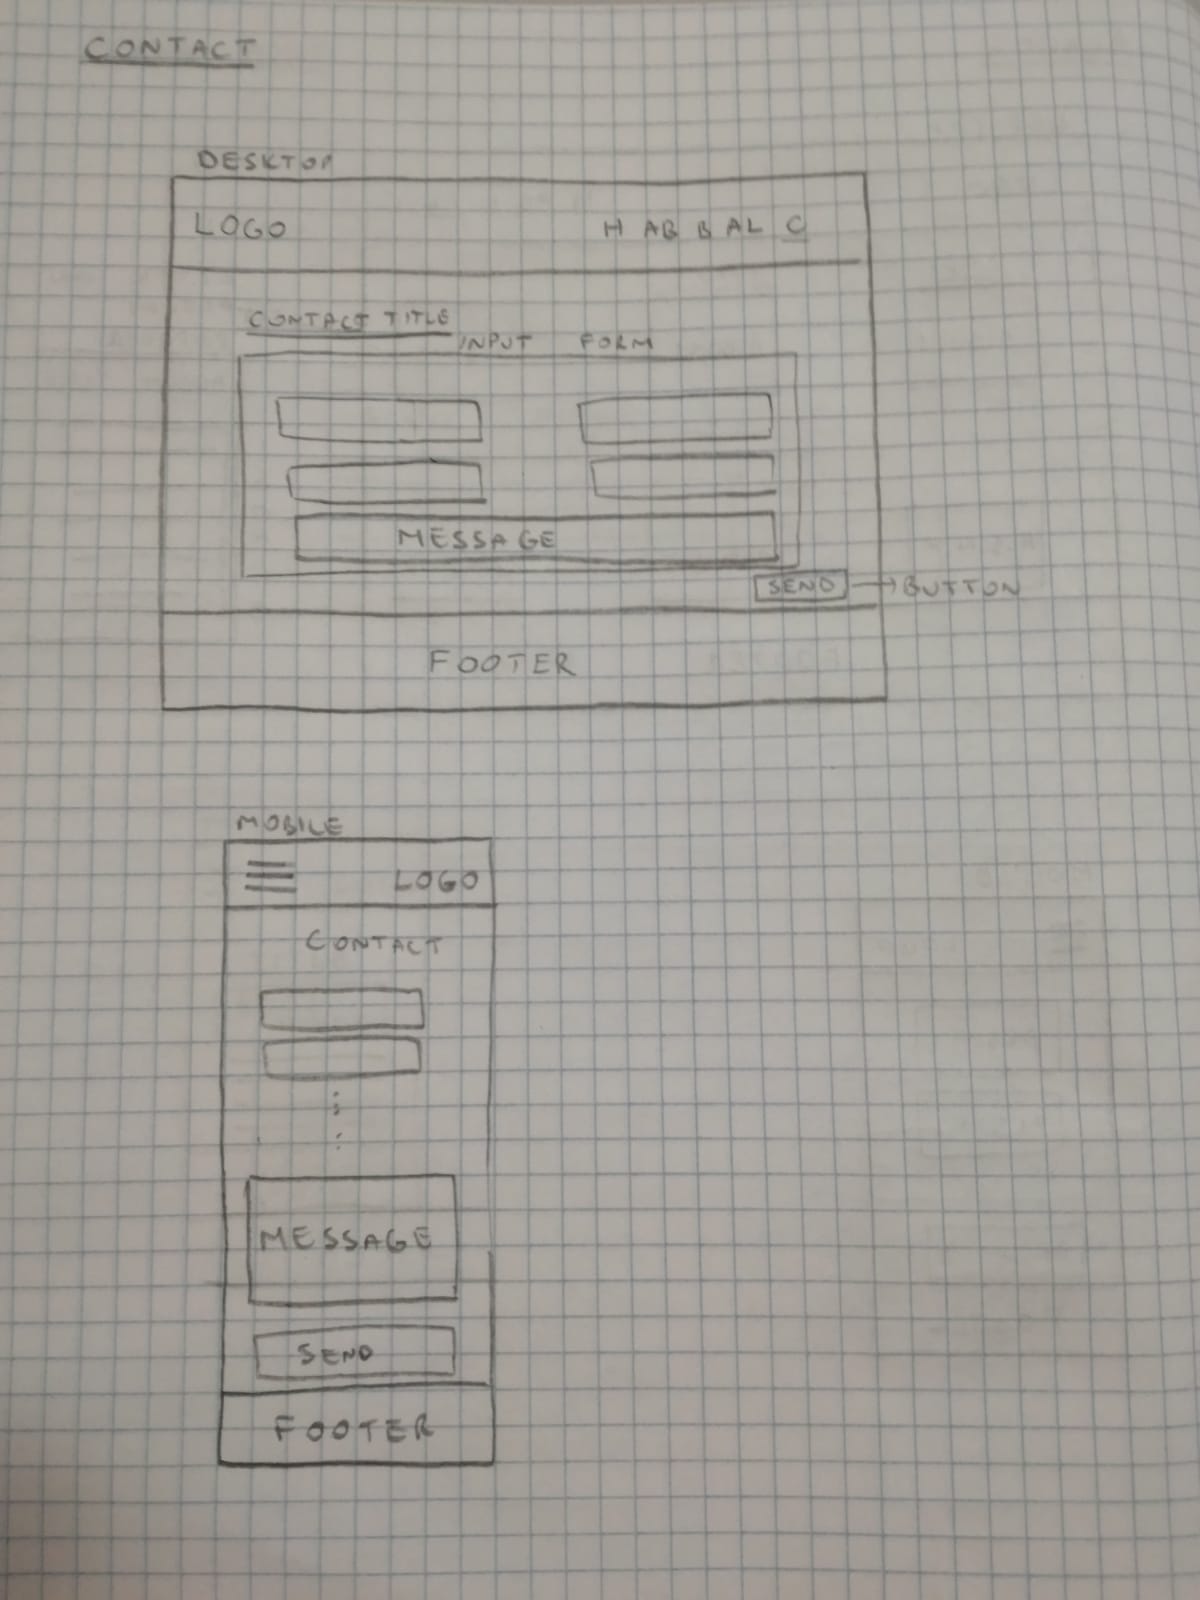 CONTACT
DESKTOP
LOGO H AB B AL C
CONTACT TITLE
INPUT FORM
MESSAGE
SEND → BUTTON
FOOTER
MOBILE
LOGO
CONTACT
MESSAGE
SEND
FOOTER